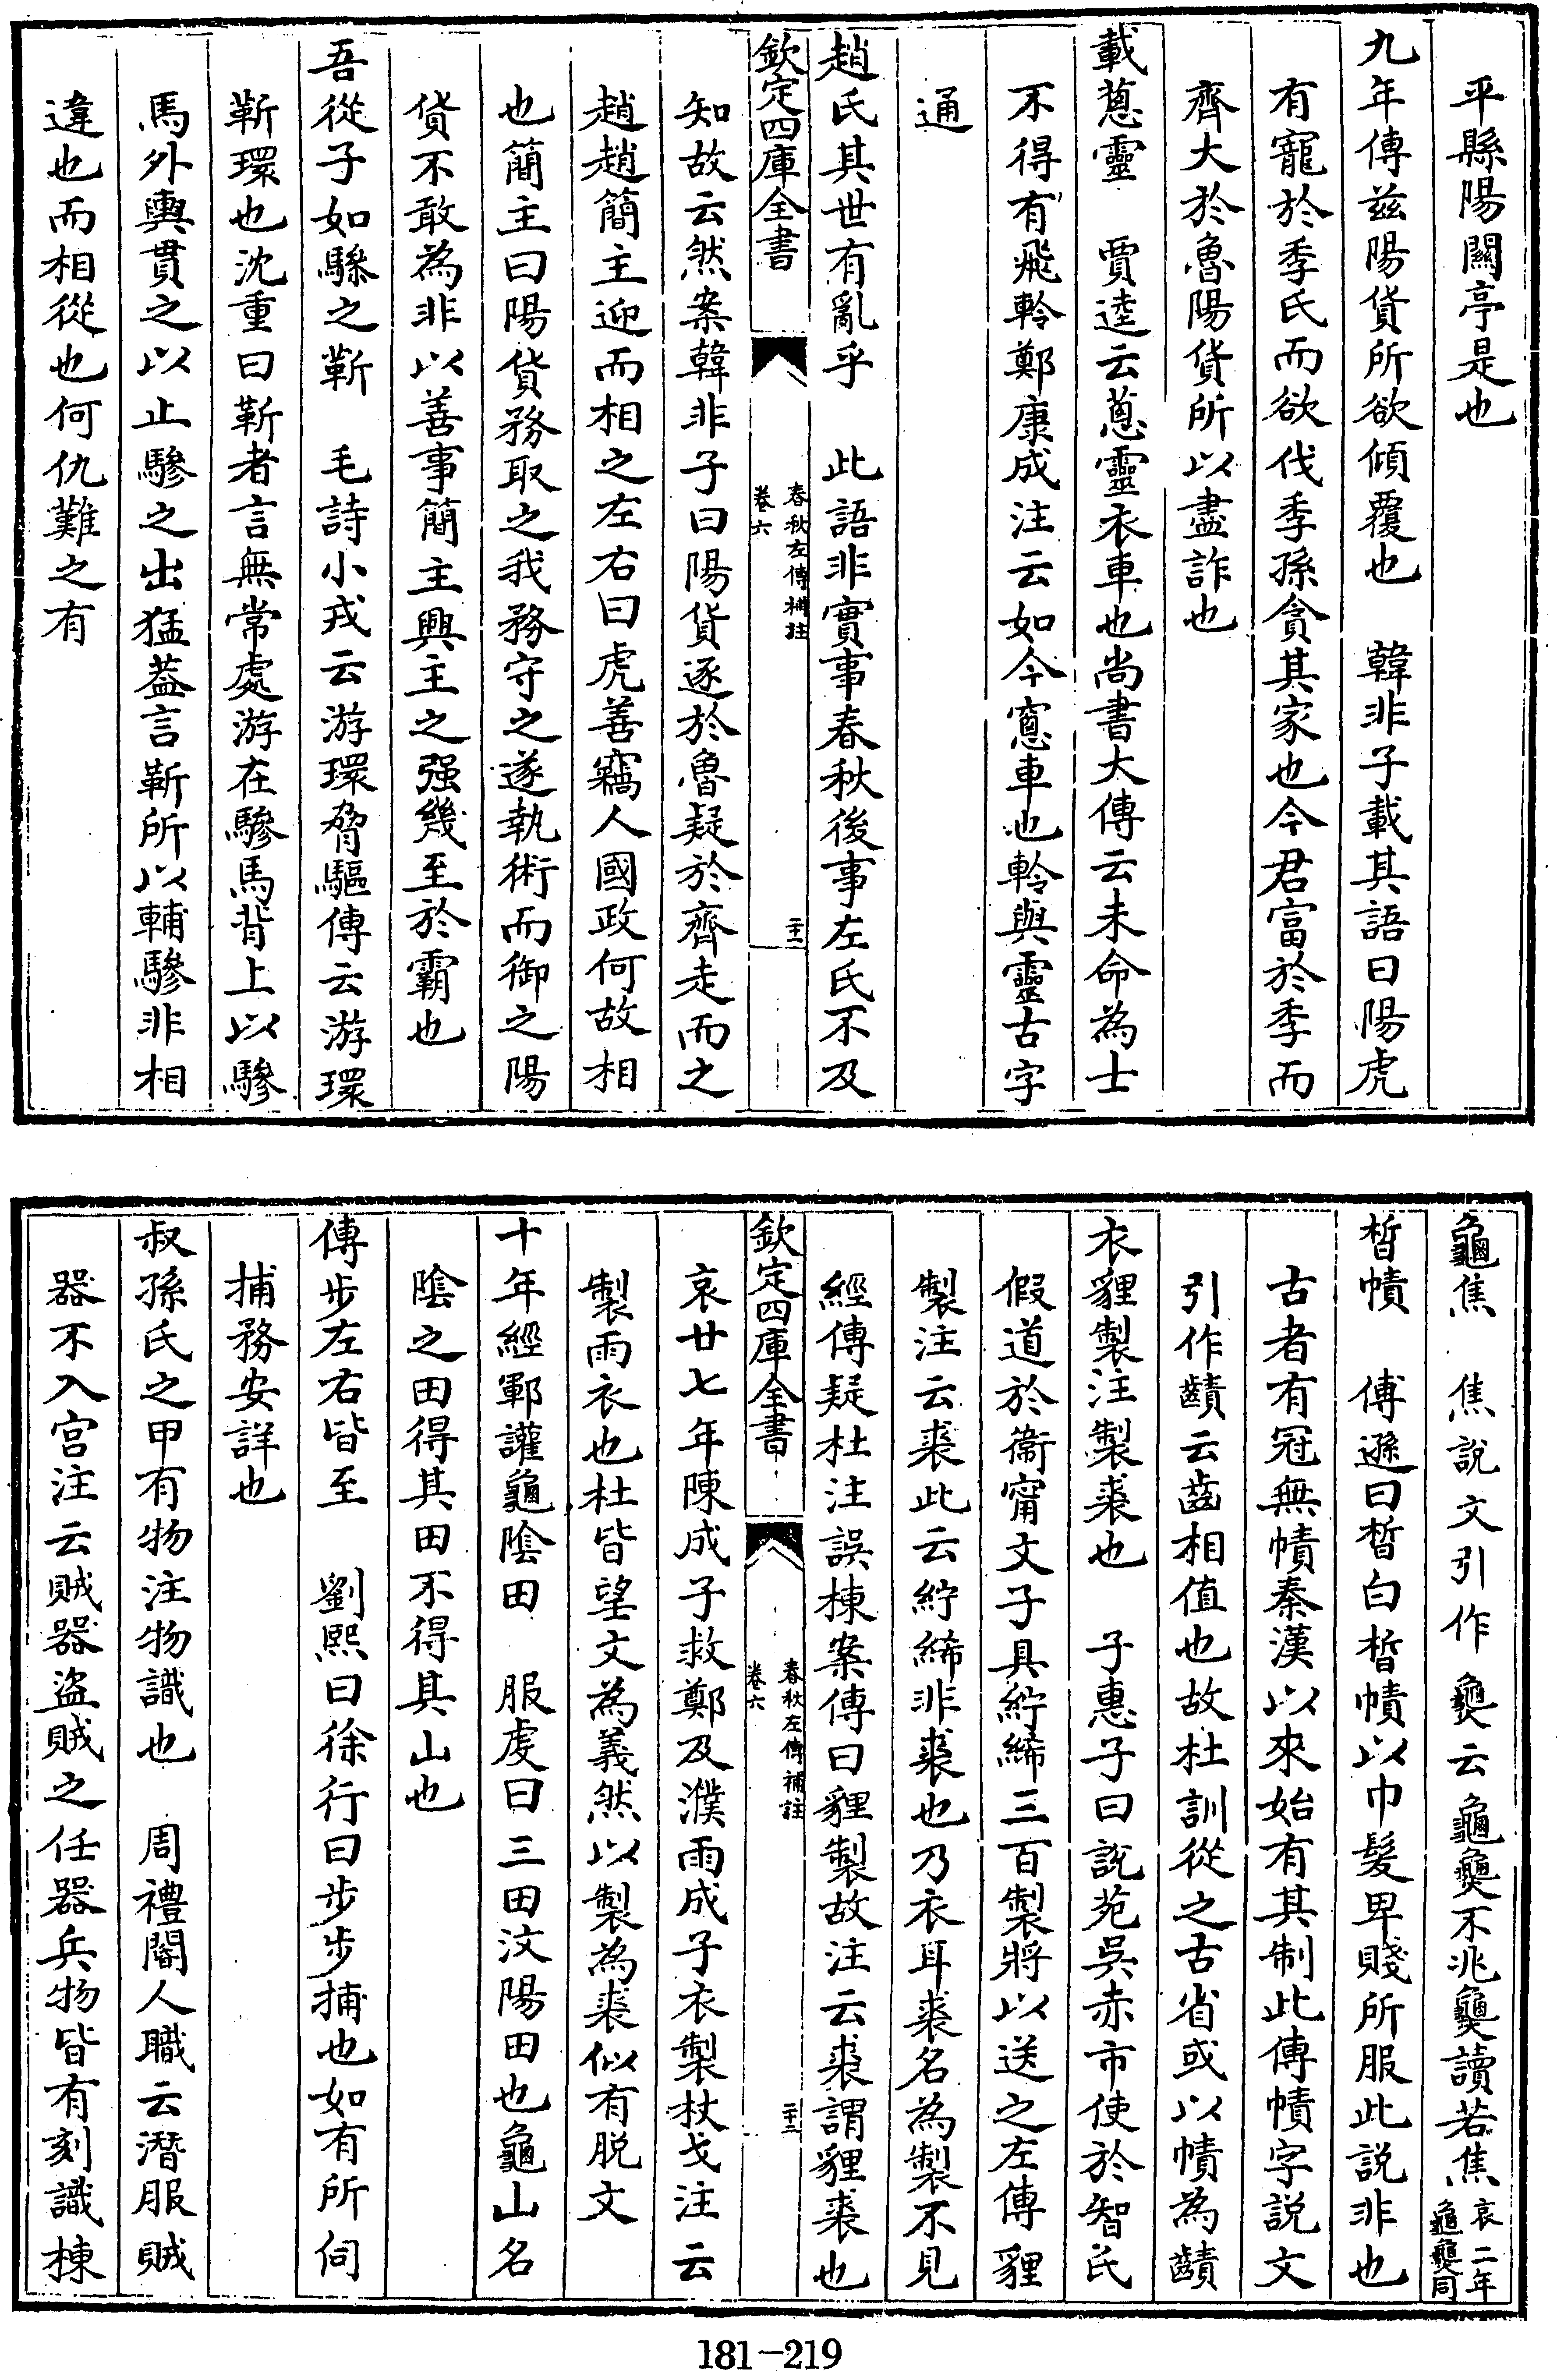 平縣陽關亭是也
九年傳兹陽貨所欲傾覆也　韓非子載其語曰陽虎
有寵於季氏而欲伐季孫貪其家也今君富於季而
齊大於魯陽貨所以盡詐也
載蔥靈　賈逵云蔥靈衣車也尚書大傳云未命為士
不得有飛軨鄭康成注云如今窻車也軨與靈古字
通
趙氏其世有亂乎　此語非實事春秋後事左氏不及
欽定四庫全書
春秋左傳補註
卷六
二十二
知故云然案韓非子曰陽貨逐於魯疑於齊走而之
趙趙簡主迎而相之左右曰虎善竊人國政何故相
也簡主曰陽貨務取之我務守之遂執術而御之陽
貨不敢為非以善事簡主興主之强幾至於霸也
吾從子如驂之靳　毛詩小戎云游環脅驅傳云游環
靳環也沈重曰靳者言無常處游在驂馬背上以驂
馬外轡貫之以止驂之出猛葢言靳所以輔驂非相
違也而相從也何仇難之有
龜焦　焦說文引作𪚰云龜𪚰不兆𪚰讀若焦哀二年龜𪚰同
皙幘　傅遜曰皙白皙幘以巾髮卑賤所服此説非也
古者有冠無幘秦漢以來始有其制此傳幘字説文
引作䶦云齒相值也故杜訓從之古省或以幘為䶦
衣貍製注製裘也　子惠子曰說苑吳赤市使於智氏
假道於衞甯文子具紵絺三百製將以送之左傳貍
製注云裘此云紵絺非裘也乃衣耳裘名為製不見
經傳疑杜注誤棟案傳曰貍製故注云裘謂貍裘也
欽定四庫全書
春秋左傳補註
卷六
二十三
哀廿七年陳成子救鄭及濮雨成子衣製杖戈注云
製雨衣也杜皆望文為義然以製為裘似有脱文
十年經鄆讙龜隂田　服虔曰三田汶陽田也龜山名
隂之田得其田不得其山也
傳步左右皆至　劉熙曰徐行曰步步捕也如有所伺
捕務安詳也
叔孫氏之甲有物注物識也　周禮閽人職云潛服賊
器不入宫注云賊器盜賊之任器兵物皆有刻識棟
181-219